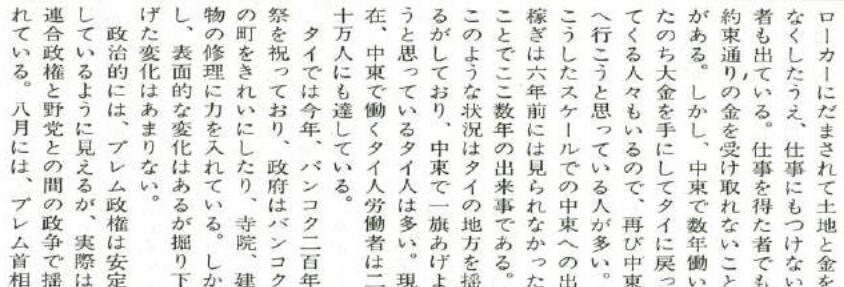 ローカーにだまされて土地と金を
なくしたうえ、仕事にもつけない
者も出ている。仕事を得た者でも
約束通りの金を受け取れないこと
がある。しかし、中東で数年働い
たのち大金を手にしてタイに戻っ
てくる人々もいるので、再び中東
へ行こうと思っている人が多い。
こうしたスケールでの中東への出
稼ぎは六年前には見られなかった
ことでここ数年の出来事である。
このような状況はタイの地方を揺
るがしており、中東で一旗あげよ
うと思っているタイ人は多い。現
在、中東で働くタイ人労働者は二
十万人にも達している。
タイでは今年、バンコク二百年
祭を祝っており、政府はバンコク
の町をきれいにしたり、寺院、建
物の修理に力を入れている。しか
し、表面的な変化はあるが掘り下
げた変化はあまりない。
政治的には、プレム政権は安定
しているように見えるが、実際は
連合政権と野党との間の政争で揺
れている。八月には、プレム首相